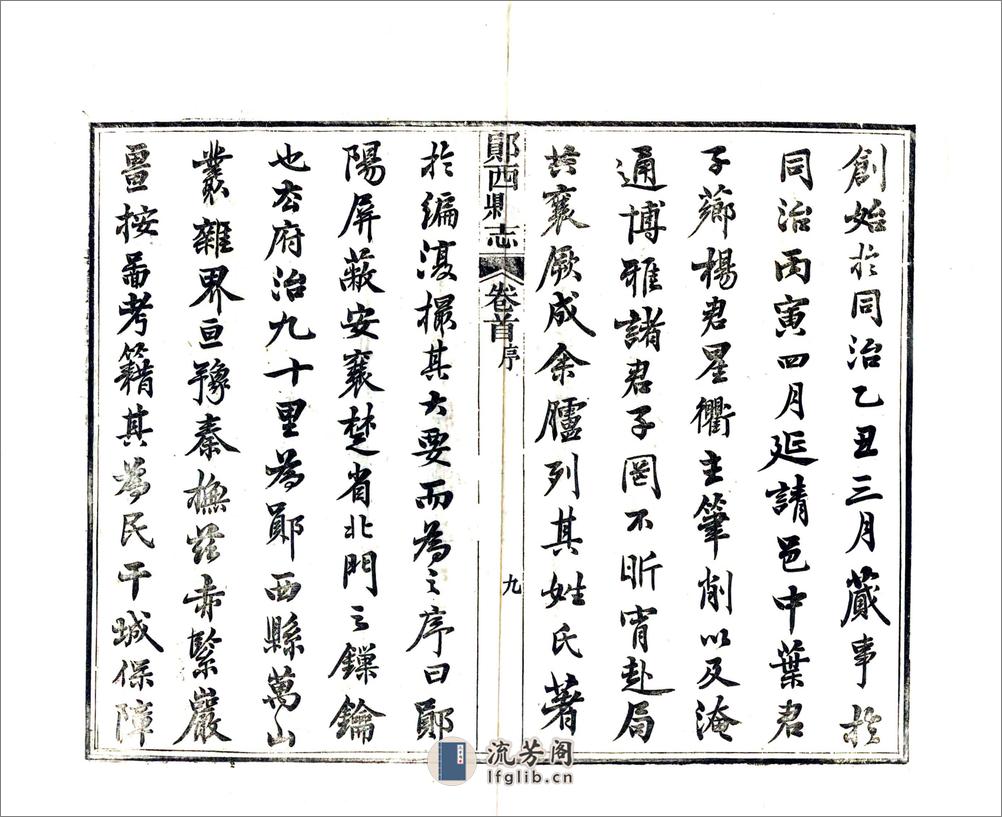 創始於同治乙丑三月蕆事於
同治丙寅四月延請邑中葉君
子薌楊君星衢主筆削以及淹
通博雅諸君子罔不昕宵赴局
共襄厥成余臚列其姓氏著
鄖西縣志
卷首
序
九
於編復撮其大要而為之序曰鄖
陽屏蔽安襄楚省北門之鏁鑰
也去府治九十里為鄖西縣萬山
叢雜界亘豫秦撫茲赤緊巖
畺按啚考籍其為民干城保障
流芳阁
lfglib.cn